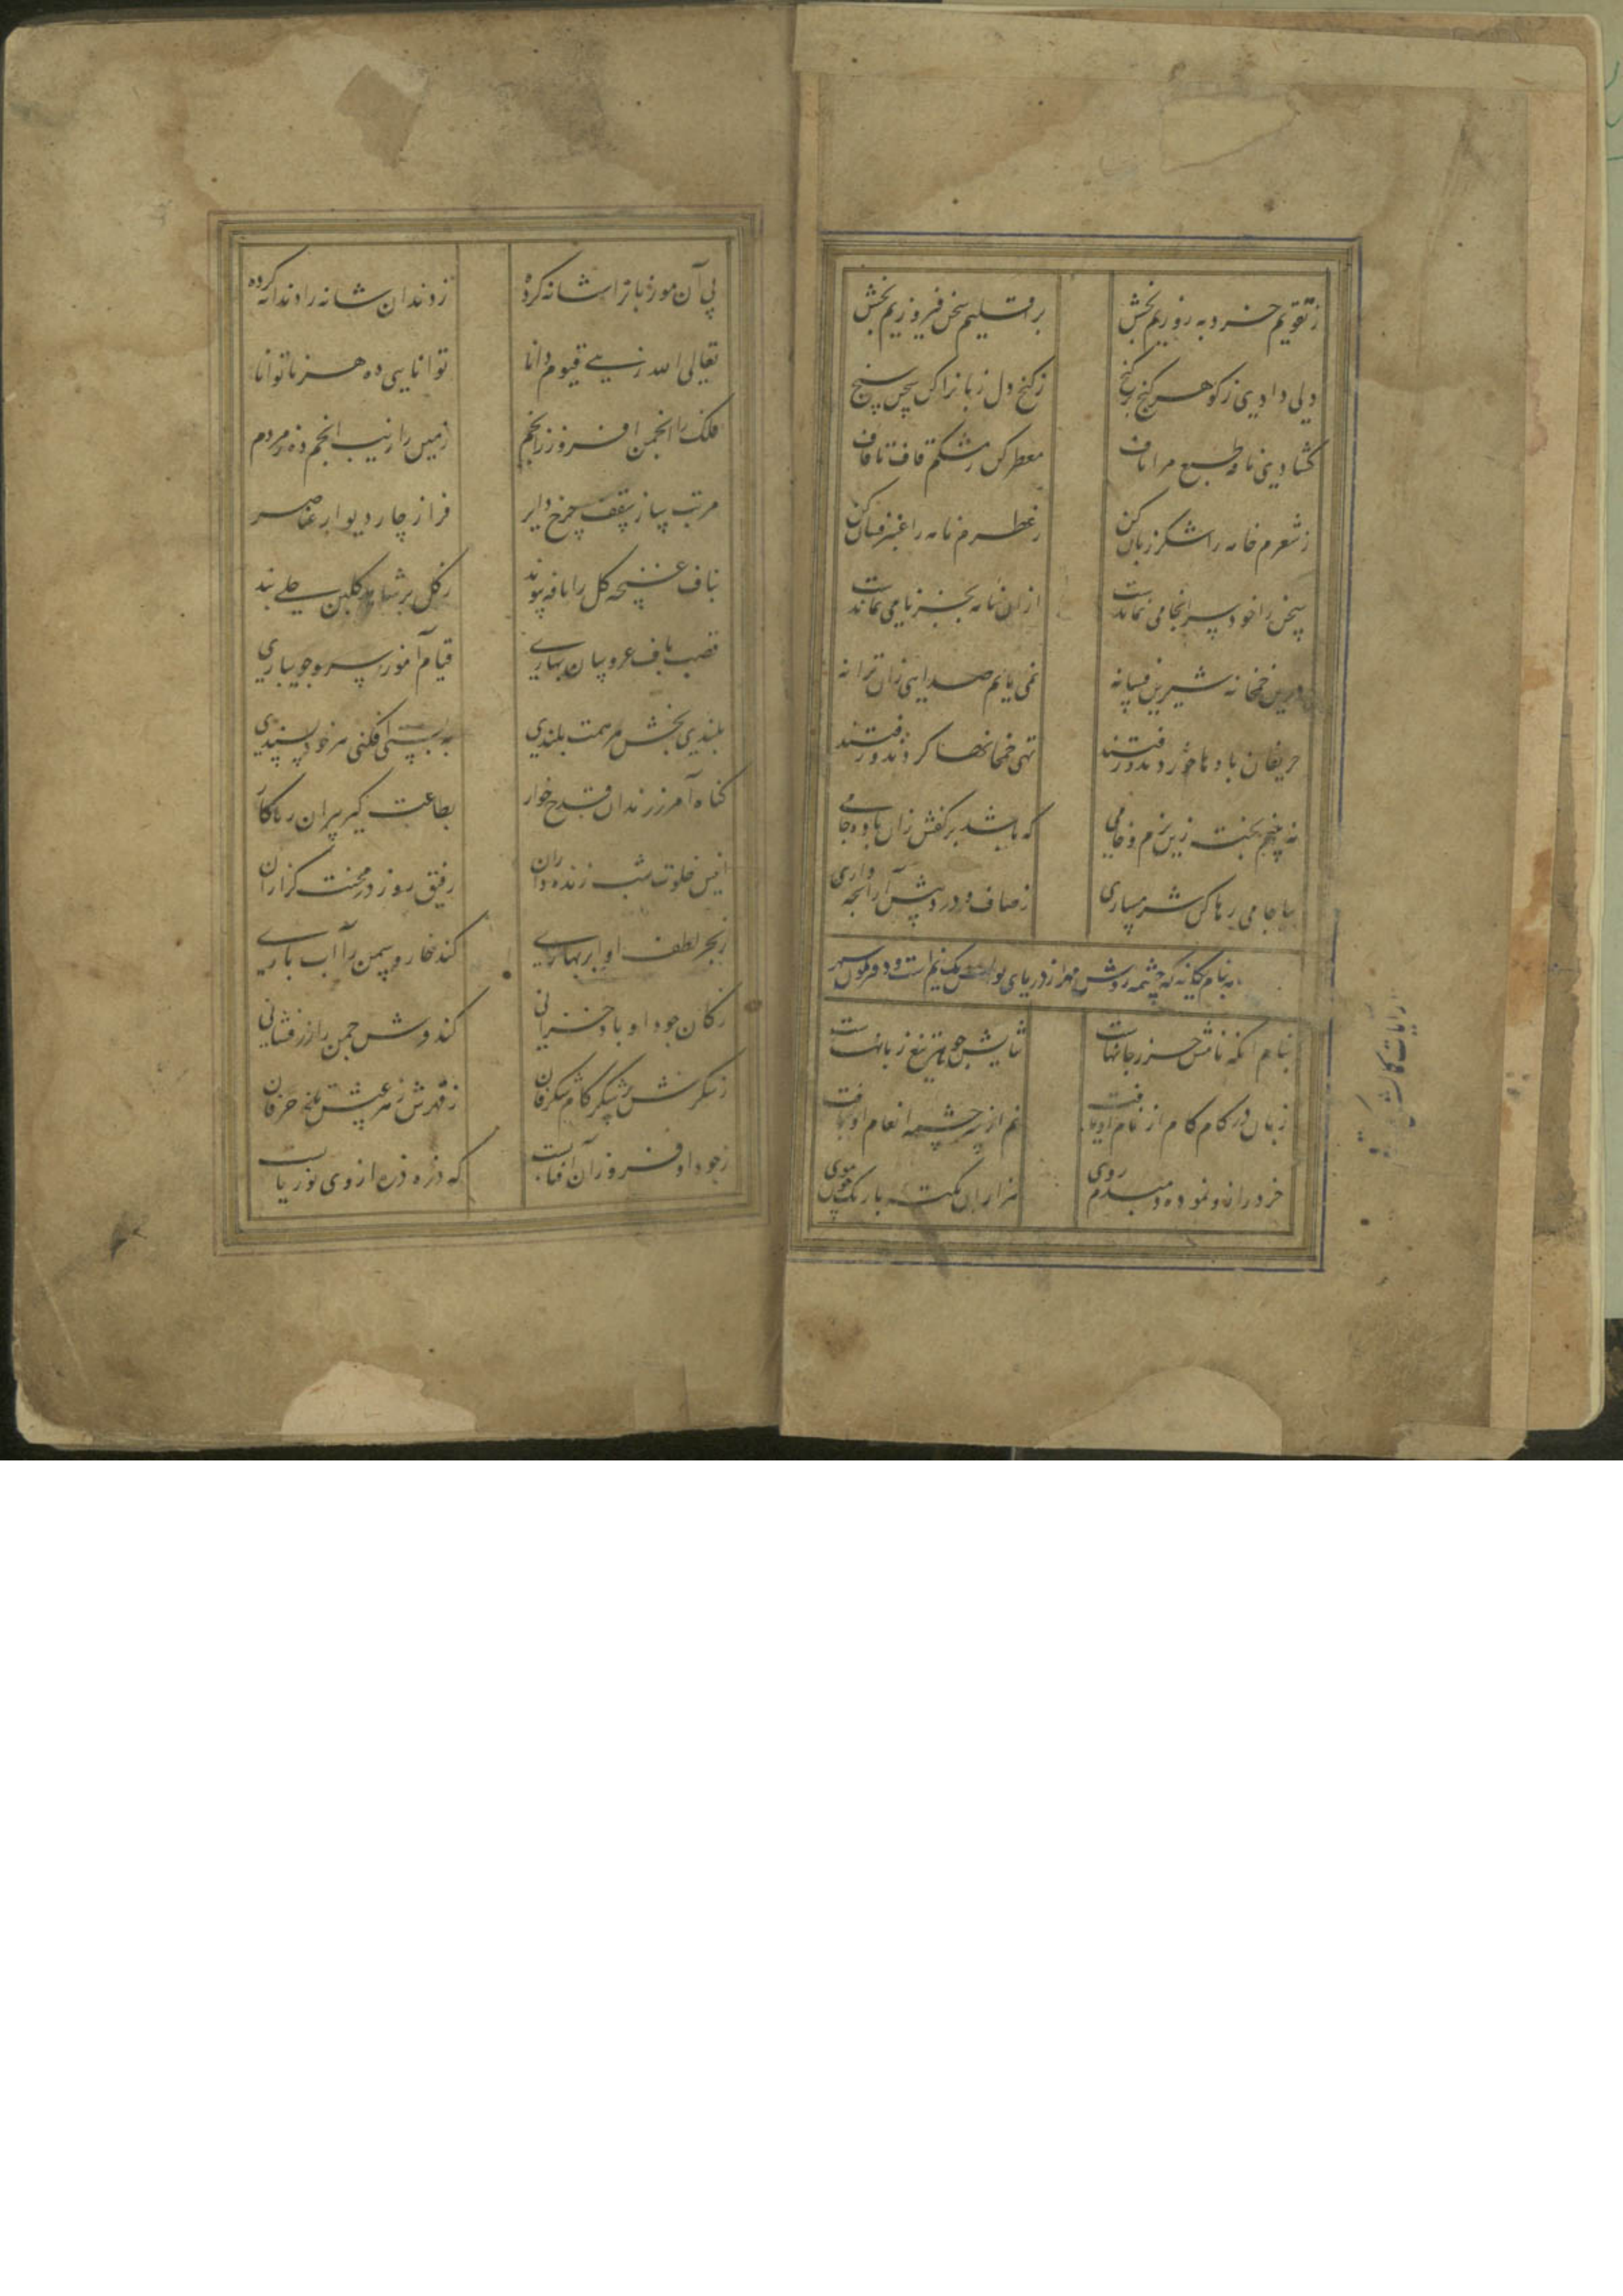 ز تقویم خرد بهروزیم بخش بر اقلیم سخن فیروزیم بخش
دلی دادی ز گوهر گنج بر گنج ز گنج دل زبانرا کن سخن سنج
گشادی نافه طبع مرا ناف معطر کن ز مشکم قاف تا قاف
ز شعرم خامه را شکر زبان کن ز عطرم نامه را عنبر فشان کن
سخن را خود سرانجامی نماندست از آن نامه بجز نامی نماندست
درین خمخانه شیرین فسانه نمی یابم صدایی زان ترانه
حریفان بادها خوردند و رفتند تهی خمخانها کردند و رفتند
نه بینم پخته زین بزم و خامی که باشد بر کفش زان باده جامی
بیا جامی رها کن شرمساری ز صاف و درد پیش آر آنچه داری
بنام آنکه نامش حرز جانهاست ثنایش جوهر تیغ زبانهاست
زبان در کام کام از نام او یافت نم از سرچشمه انعام او یافت
خرد را زو نموده دمبدم روی هزاران نکته باریک چون موی
پی آن مو زبانرا شانه کرده ز دندان شانه را دندانه کرده
تعالی الله زهی قیوم دانا توانایی ده هر ناتوانا
فلک را انجمن افروز ز انجم زمین را زیب انجم ده ز مردم
مرتب ساز سقف چرخ دایر فراز چار دیوار عناصر
بناف غنچه گل را نافه پیوند ز گل بر شاهد گلبن حلی بند
قصب باف عروسان بهاری قیام آموز سرو جویباری
بلندی بخش هر همت بلندی به پستی افکن هر خودپسندی
گناه آمرز رندان قدح خوار بطاعت گیر پیران ریاکار
انیس خلوت شب زنده داران رفیق روز در محنت گزاران
ز بحر لطف او ابر بهاری کند خار و سمن را آب یاری
ز کان جود او باد خزانی کند فرش چمن را زر فشانی
ز شکرش شکر کام شکرفان ز قهرش زهر عیش تلخ حرفان
ز جود او فروزان آفتابست که ذره ذره از وی نور یابست